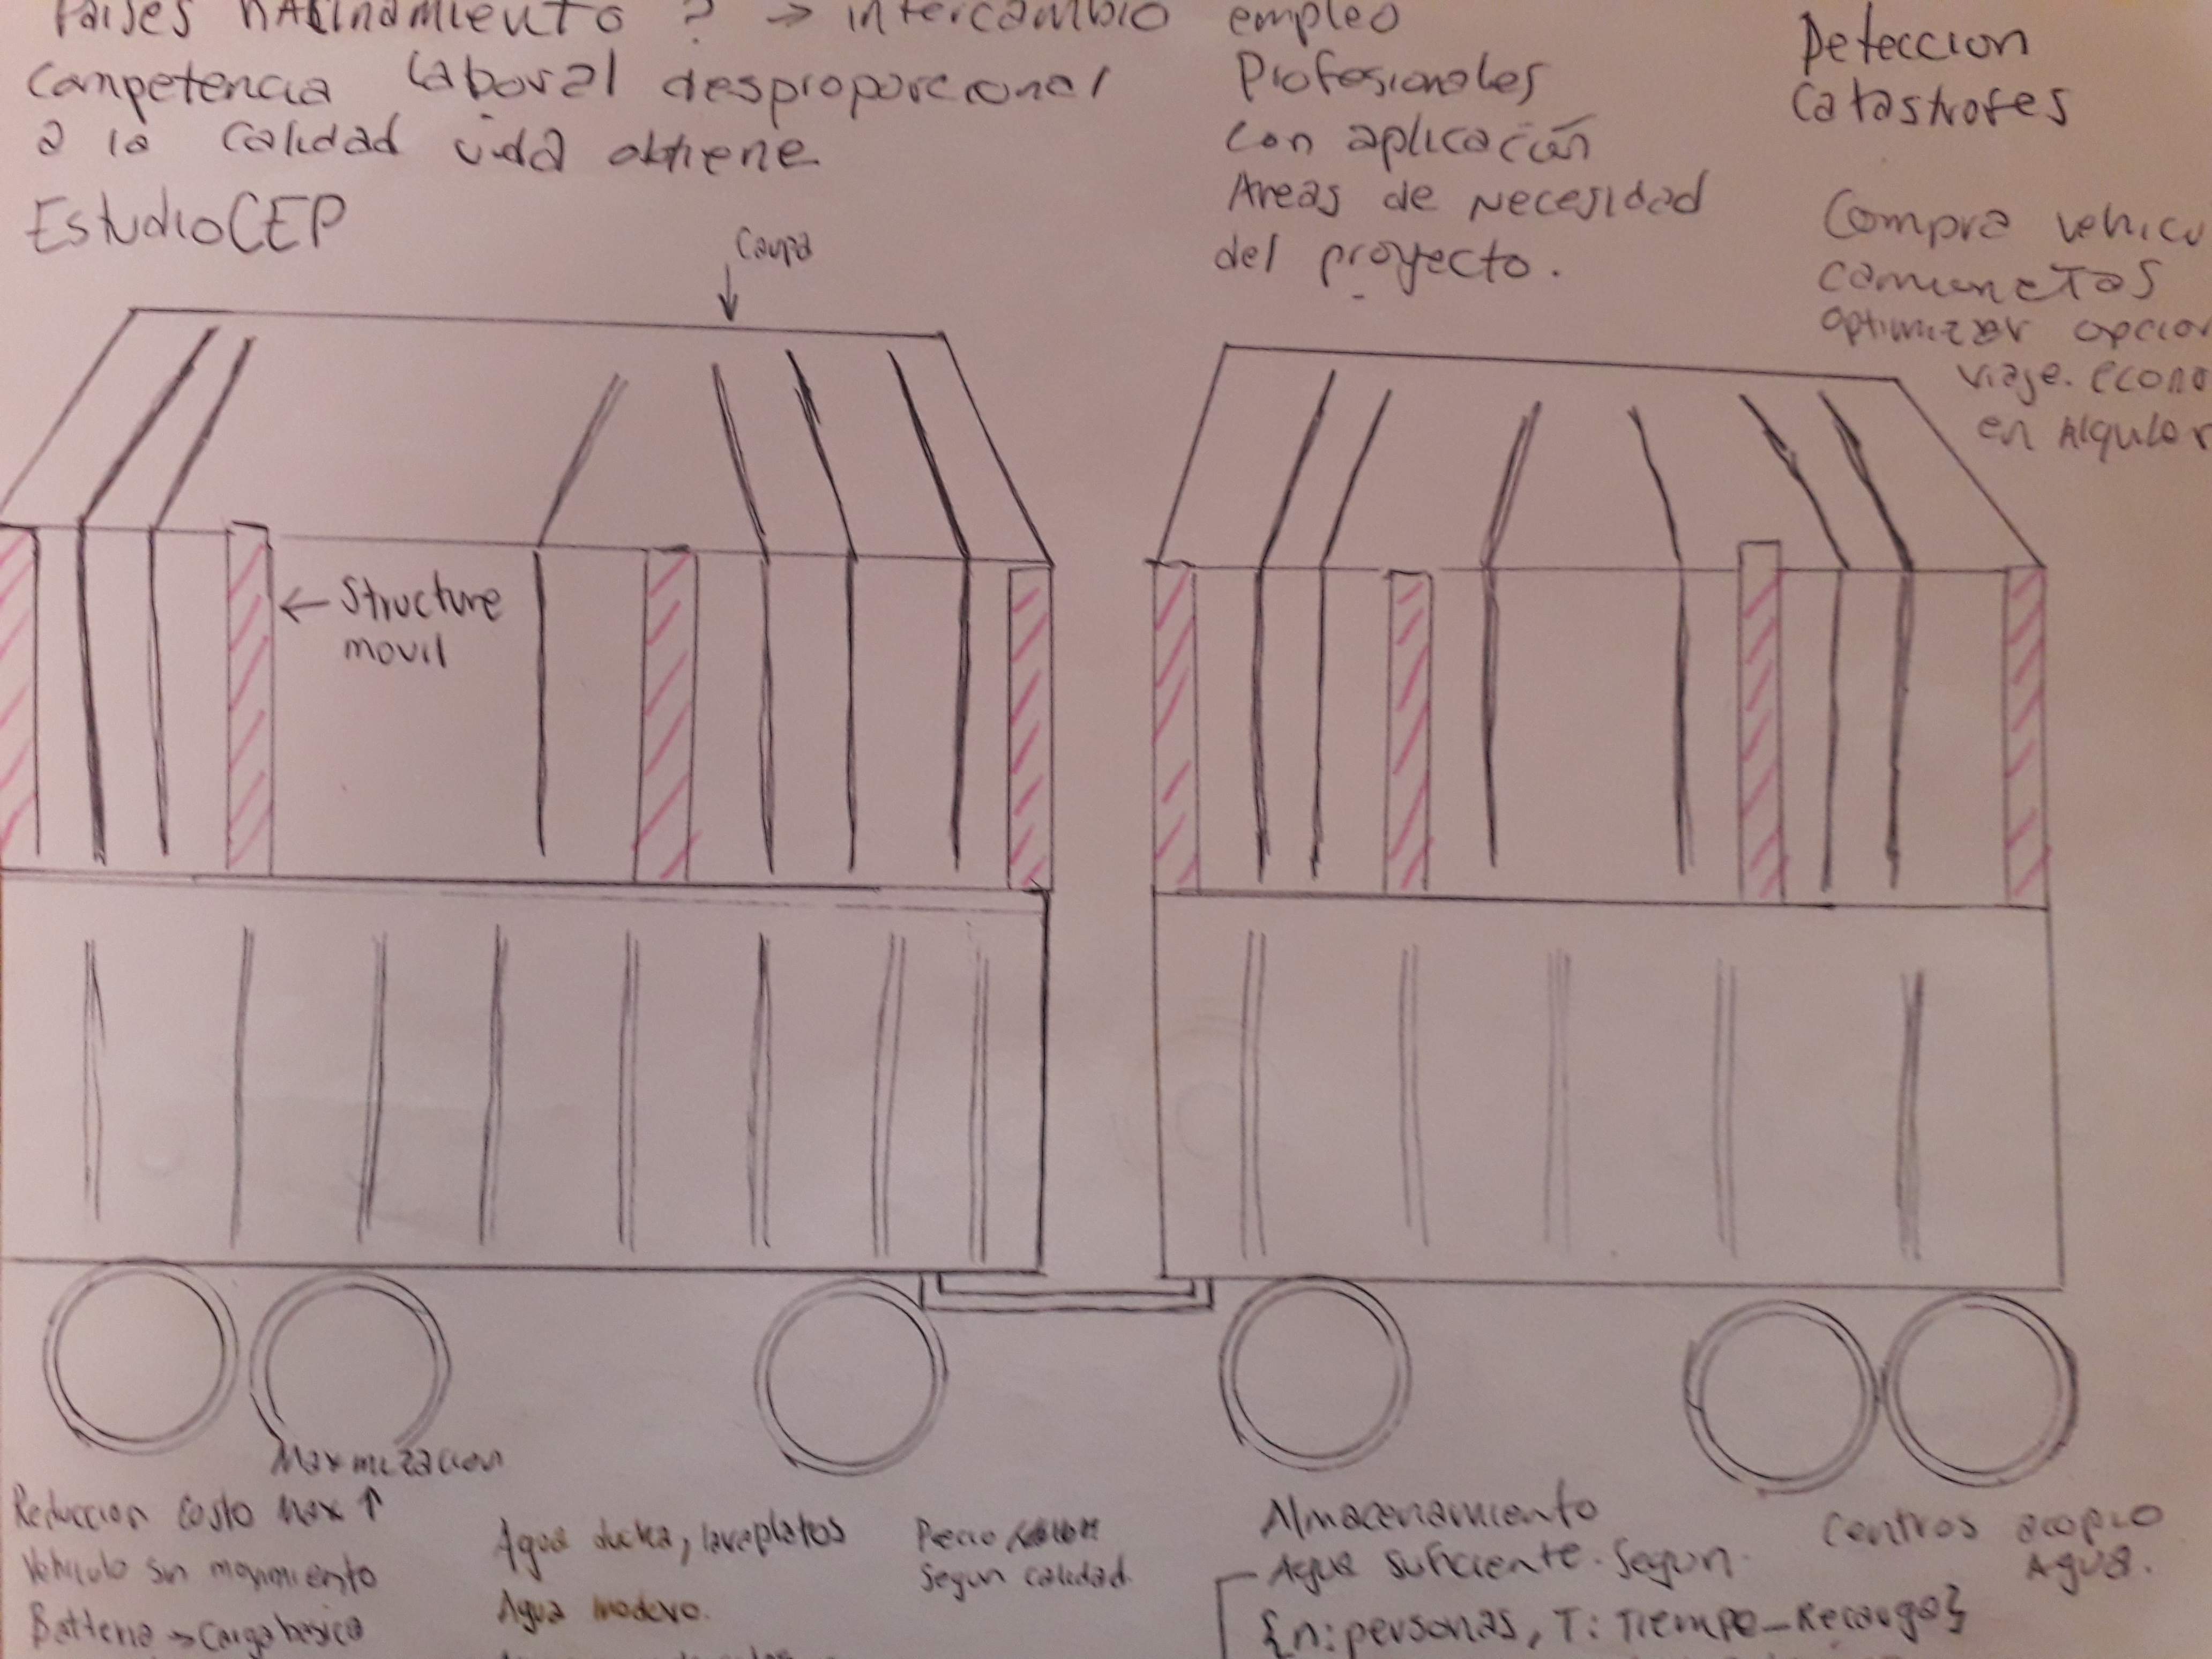 Paises HACINAMIENTO ? → intercambio
Competencia Laboral desproporcional
a la calidad vida obtiene
EstudioCEP
empleo
Profesionales
con aplicación
Areas de Necesidad
del proyecto.
Detección
Catastrofes
Compra vehicu
Camionetas
optimizar opcion
viaje. econo
en Alquiler
Carpa
↓
← Structure
movil
Maximizacion
Reduccion Costo Max ↑
Vehiculo sin movimiento
Batteria → Carga basica
Agua ducha, lavaplatos
Agua inodoro.
Precio
Segun calidad
Almacenamiento
Agua suficiente. Segun.
{n: personas, T: Tiempo-Recarga}
Centros acopio
Agua.